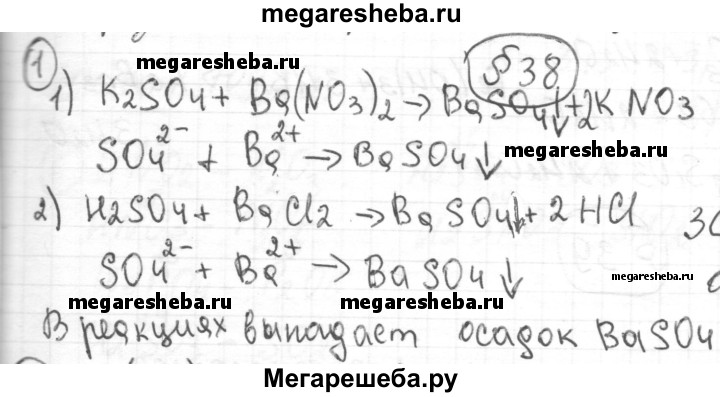 megaresheba.ru
① § 38
megaresheba.ru
1) K2SO4 + Ba(NO3)2 → BaSO4↓ + 2KNO3
SO4²⁻ + Ba²⁺ → BaSO4↓
megaresheba.ru
2) H2SO4 + BaCl2 → BaSO4↓ + 2HCl
SO4²⁻ + Ba²⁺ → BaSO4↓
megaresheba.ru
megaresheba.ru megaresheba.ru
В реакциях выпадает осадок BaSO4
Мегарешеба.ру